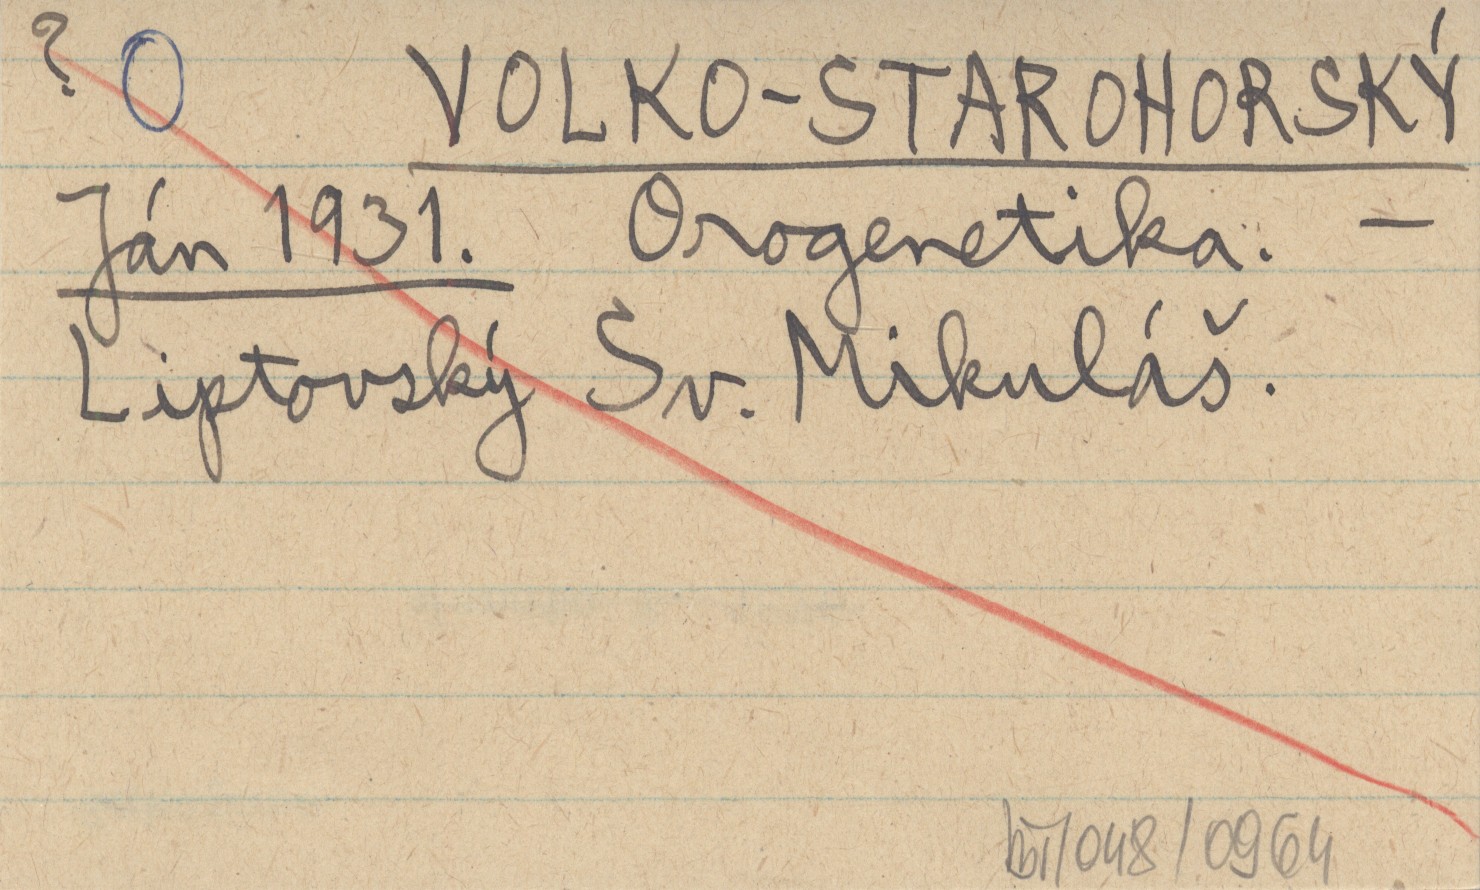 ? O VOLKO-STAROHORSKÝ
Ján 1931. Orogenetika. —
Liptovský Sv. Mikuláš.
/048/0964